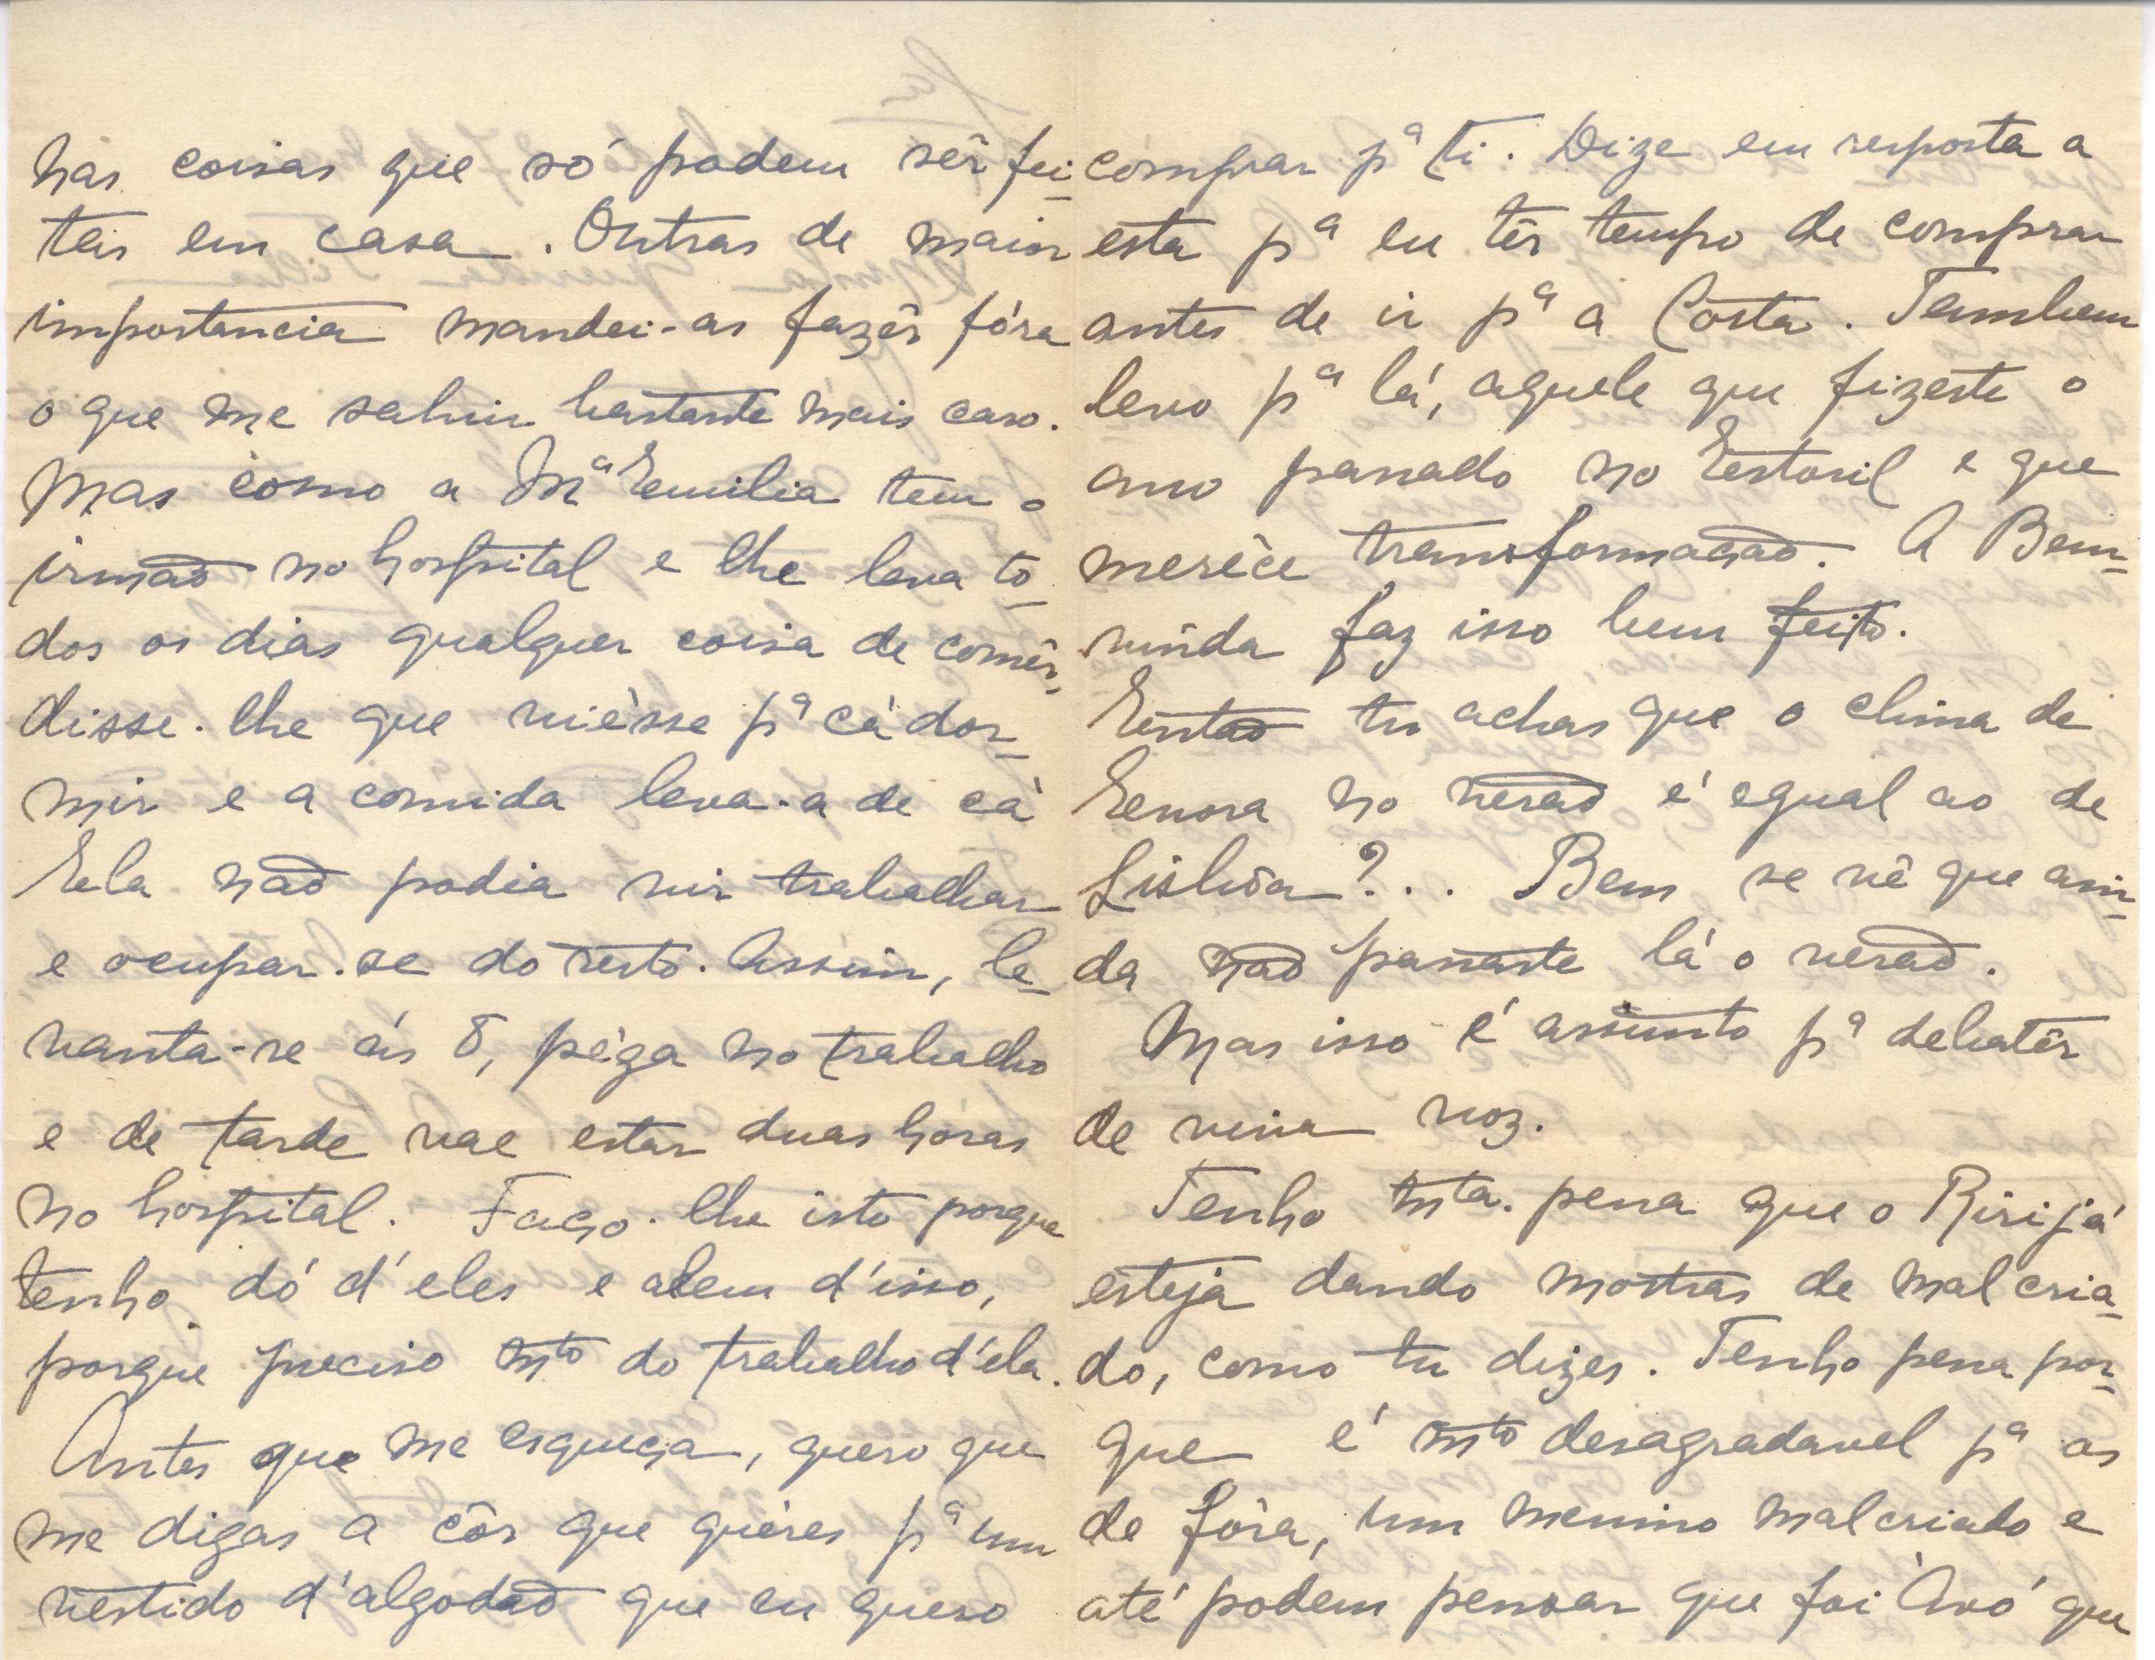 has coisas que só podem sêr fei-
tas em casa. Outras de maior
importancia mandei-as fazêr fóra
o que me sahiu bastante mais caro.
Mas como a Mª Emilia tem o
irmão no hospital e lhe leva to-
dos os dias qualquer coisa de comêr,
disse-lhe que viésse pª cá dor-
mir e a comida leva-a de cá
Ela não podia vir trabalhar
e ocupar-se do resto. Assim, le-
vanta-se ás 8, péga no trabalho
e de tarde vae estar duas horas
no hospital. Faço-lhe isto porque
tenho dó d'eles e alem d'isso,
porque preciso mto do trabalho d'ela.
Antes que me esqueça, quero que
me digas a côr que quéres pª um
vestido d'algodão que eu quero
comprar pª ti. Dize em resposta a
esta pª eu têr tempo de comprar
antes de ir pª a Costa. Tambem
levo pª lá, aquele que fizeste o
ano passado no Estoril e que
meréce transformação. A Bem-
vinda faz isso bem feito.
Então tu achas que o clima de
Evora no verão é egual ao de
Lisbôa?... Bem se vê que ain-
da não passaste lá o verão.
Mas isso é assunto pª debatêr
de viva voz.
Tenho mta. pena que o Riri já
esteja dando mostras de mal cria-
do, como tu dizes. Tenho pena por-
que é mto desagradavel pª os
de fóra, um menino malcriado e
até podem pensar que foi Avó que